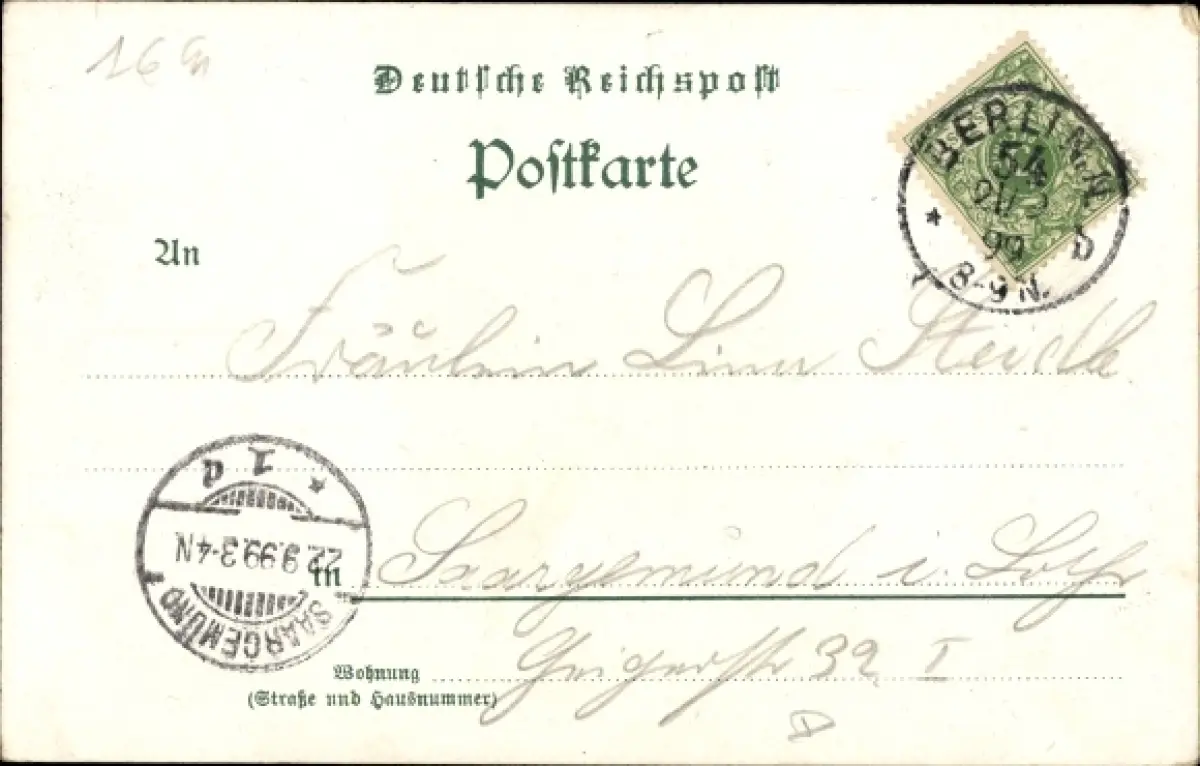 16
Deutsche Reichspost
Postkarte
BERLIN N.
54
21/9
99
8-9 N.
b
An
Fräulein Linn Steidle
1 d
22.9.99.3-4N
SAARGEMÜND
in Saargemünd i. Lothr
Wohnung
(Straße und Hausnummer)
39 I